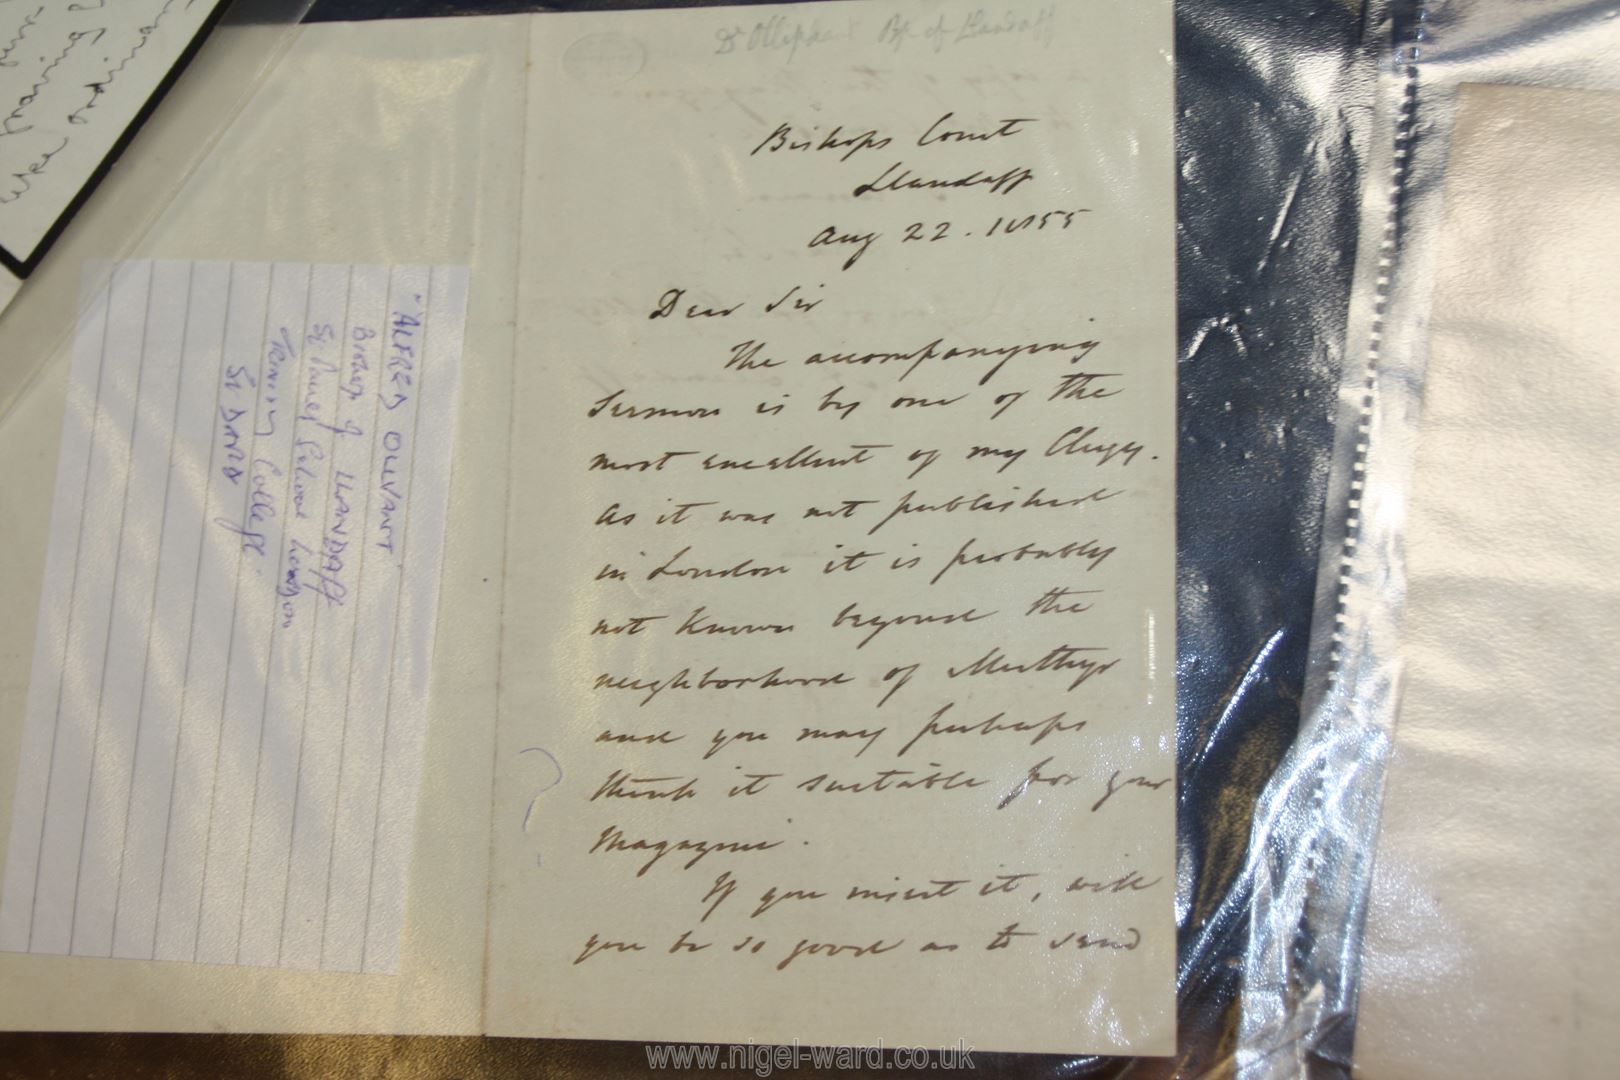 Dr Olliphant Bp of Llandaff
Bishops Court
Llandaff
Aug 22. 1855
Dear Sir
The accompanying
Sermon is by one of the
most excellent of my Clergy.
As it was not published
in London it is probably
not known beyond the
neighborhood of Merthyr
and you may perhaps
think it suitable for your
Magazine.
If you insert it, will
you be so good as to send
"ALFRED OLIVANT"
Bishop of LLANDAFF
St Pauls School London
Trinity College
St DAVID
www.nigel-ward.co.uk